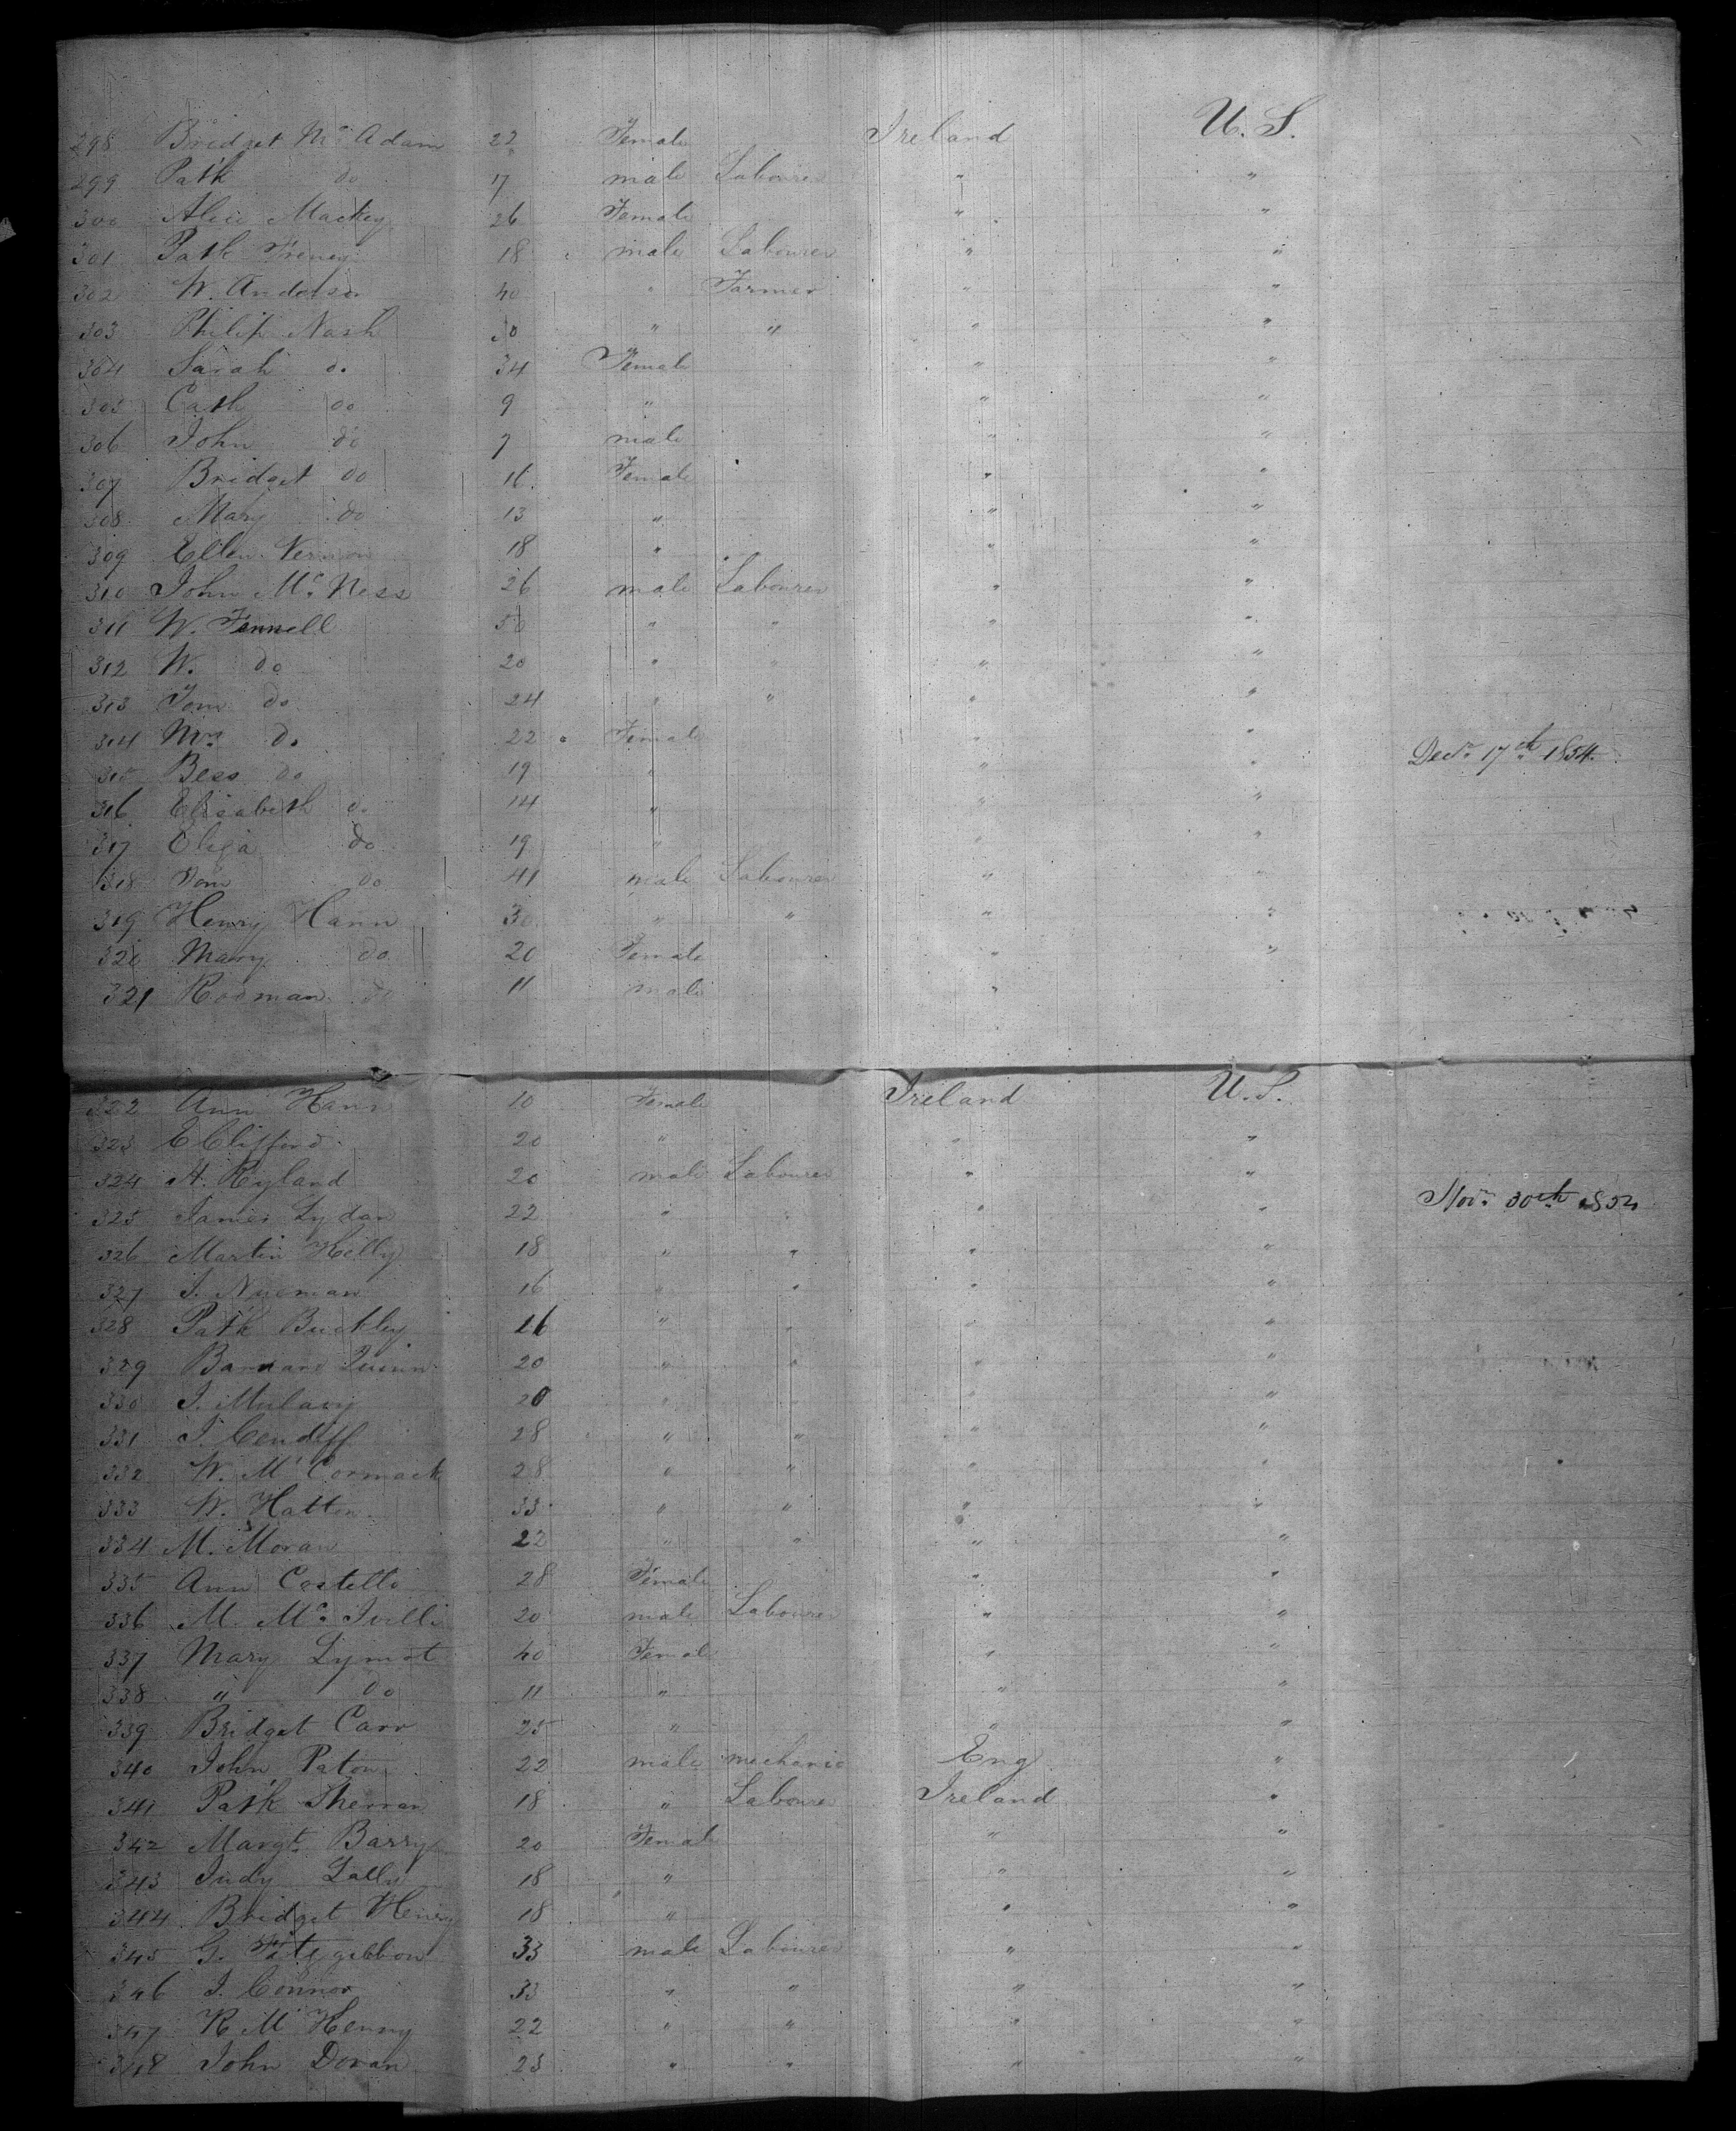 298 Bridget Mc Adam 22 Female Ireland U.S.
299 Patk do 17 male Labourer " "
300 Alice Mackey 26 Female " "
301 Patk 18 male Labourer " "
302 W. Anderson 40 " Farmer " "
303 Philip Nash 30 " " " "
304 Sarah do 34 Female " "
305 Cath do 9 " " "
306 John do 7 male " "
307 Bridget do 16 Female " "
308 Mary do 13 " " "
309 Ellen Vernon 18 " " "
310 John Mc Ness 26 male Labourer " "
311 W. Fennell 50 " " " "
312 W. do 20 " " " "
313 Tom do 24 " " " "
314 Mrs do 22 Female " "
Decr 17th 1854.
315 Bess do 19 " " "
316 Elisabeth do 14 " " "
317 Eliza do 19 " " "
318 Tom do 41 male Labourer " "
319 Henry Hann 30 " " " "
320 Mary do 20 Female " "
321 Rodman do 11 male "
322 Ann Hann 10 Female Ireland U.S.
323 E Clifford 20 " " "
324 H. Ryland 20 male Labourer " "
Novr 30th 1854
325 James Lydan 22 " " " "
326 Martin Kelly 18 " " " "
327 J. Nueman 16 " " " "
328 Patk Buckley 16 " " " "
329 Barnard Quinn 20 " " " "
330 J. Mulavy 20 " " " "
331 J. Cendiff 28 " " " "
332 W. Mc Cormack 28 " " " "
333 W. Hatton 33 " " " "
334 M. Moran 22 " " " "
335 Ann Costello 28 Female " "
336 M. Mc 20 male Labourer " "
337 Mary Lymot 40 Female " "
338 " do 11 " " "
339 Bridget Carr 25 " " "
340 John Paton 22 male mechanic Eng "
341 Patk Sherran 18 " Labourer Ireland "
342 Margt Barry 20 Female " "
343 Judy Lally 18 " " "
344 Bridget Henry 18 " " "
345 G. Fitzgibbon 33 male Labourer " "
346 J. Connor 33 " " " "
347 K. Mc Henry 22 " " " "
348 John Doran 23 " " " "